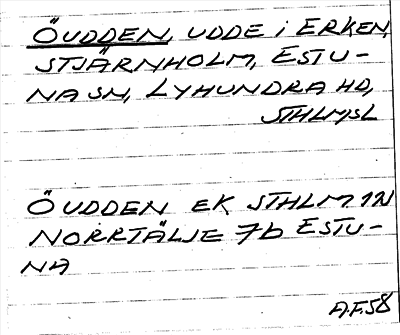 ÖUDDEN, UDDE i ERKEN,
STJÄRNHOLM, ESTU-
NA SN, LYHUNDRA HD,
STHLMSL
ÖUDDEN EK STHLM 12
NORRTÄLJE 7b ESTU-
NA
A.F.58